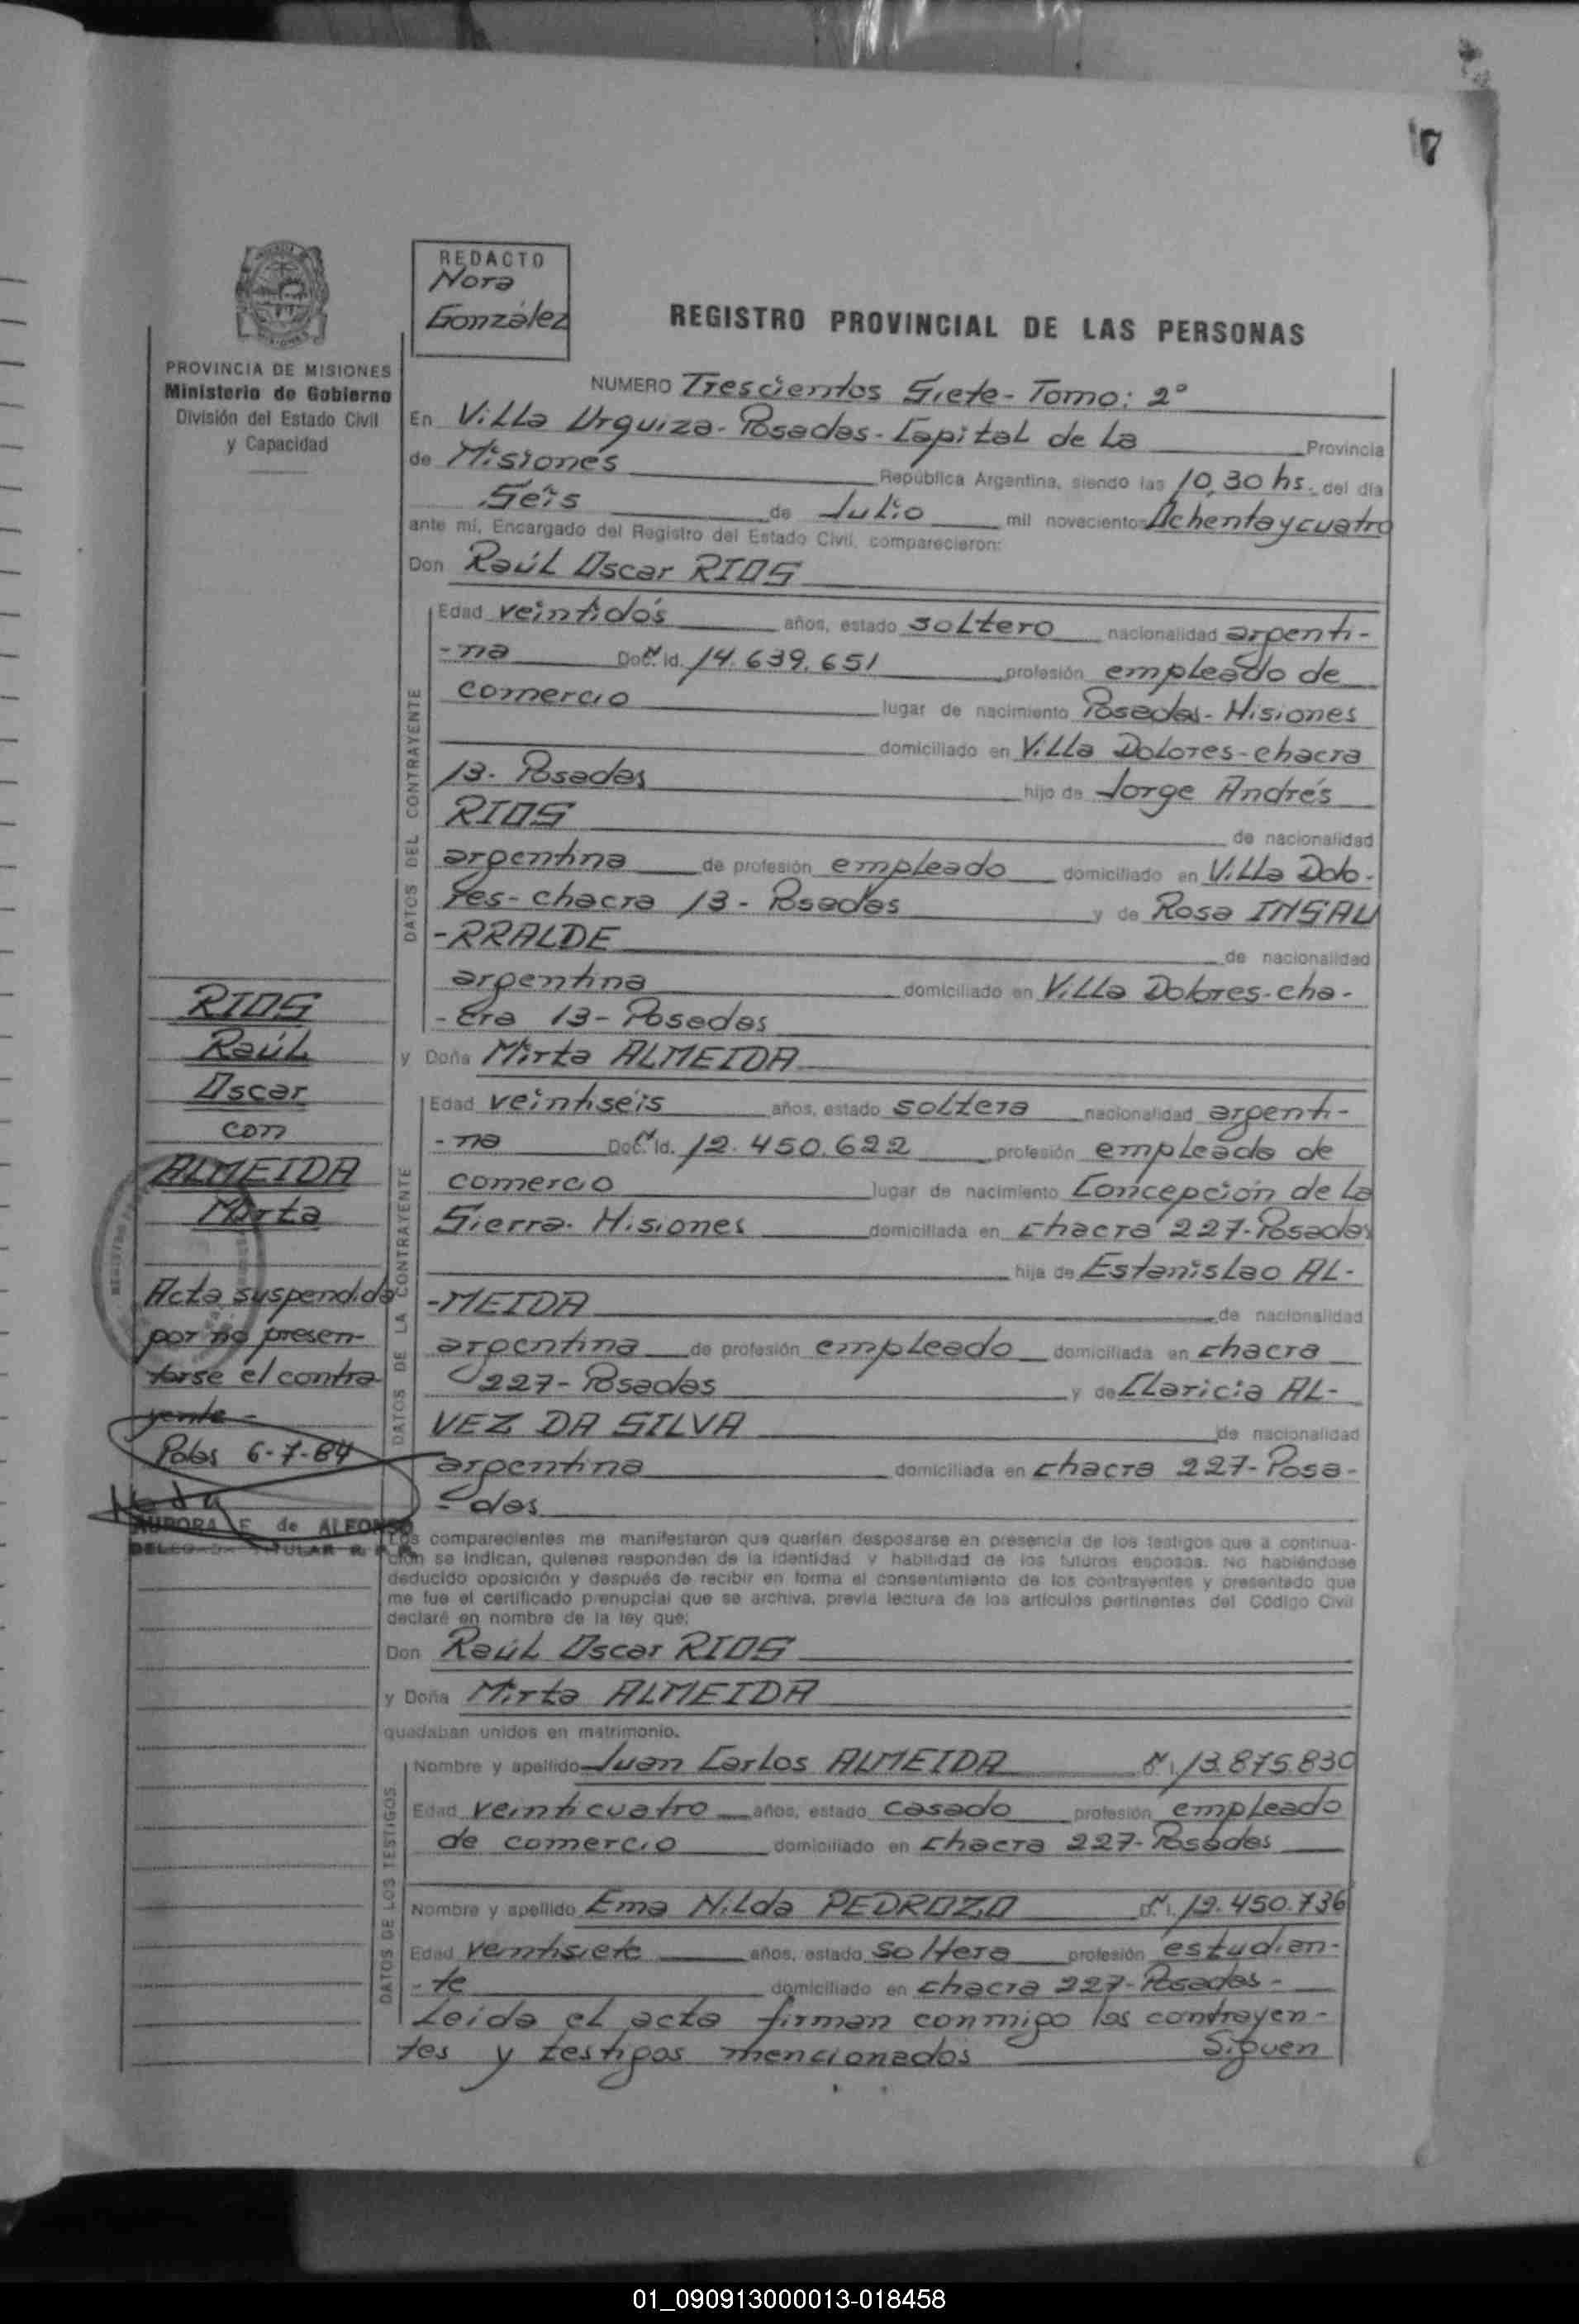 REDACTO
Nora
González
REGISTRO PROVINCIAL DE LAS PERSONAS
PROVINCIA DE MISIONES
Ministerio de Gobierno
División del Estado Civil
y Capacidad
NUMERO Trescientos Siete - Tomo: 2°
En Villa Urquiza - Posadas - Capital de La Provincia
de Misiones República Argentina, siendo las 10,30 hs. del día
Seis de Julio mil novecientos Ochenta y cuatro
ante mí, Encargado del Registro del Estado Civil, comparecieron:
Don Raúl Oscar RIOS
DATOS DEL CONTRAYENTE
Edad veintidós años, estado soltero nacionalidad argenti-
-na Doc. Id. 14.639.651 profesión empleado de
comercio lugar de nacimiento Posadas - Misiones
domiciliado en Villa Dolores - chacra
13. Posadas hijo de Jorge Andrés
RIOS de nacionalidad
argentina de profesión empleado domiciliado en Villa Dolo-
res - chacra 13 - Posadas y de Rosa INSAU
-RRALDE de nacionalidad
argentina domiciliado en Villa Dolores - cha-
-cra 13 - Posadas
y Doña Mirta ALMEIDA
DATOS DE LA CONTRAYENTE
Edad veintiseis años, estado soltera nacionalidad argenti-
-na Doc. Id. 12.450.622 profesión empleada de
comercio lugar de nacimiento Concepción de La
Sierra - Misiones domiciliada en chacra 227 - Posadas
hija de Estanislao AL-
-MEIDA de nacionalidad
argentina de profesión empleado domiciliada en chacra
227 - Posadas y de Claricia AL-
VEZ DA SILVA de nacionalidad
argentina domiciliada en chacra 227 - Posa-
-das
RIOS
Raúl
Oscar
con
ALMEIDA
Mirta
Acta suspendida
por no presen-
tarse el contra
yente -
Pdas 6-7-84
AURORA E. de ALFONSO
DELEGADA TITULAR R. P. P.
Los comparecientes me manifestaron que querían desposarse en presencia de los testigos que a continua-
ción se indican, quienes responden de la identidad y habilidad de los futuros esposos. No habiéndose
deducido oposición y después de recibir en forma el consentimiento de los contrayentes y presentado que
me fue el certificado prenupcial que se archiva, previa lectura de los artículos pertinentes del Código Civil
declaré en nombre de la ley que:
Don Raúl Oscar RIOS
y Doña Mirta ALMEIDA
quedaban unidos en matrimonio.
DATOS DE LOS TESTIGOS
Nombre y apellido Juan Carlos ALMEIDA 13.875.830
Edad veinticuatro años, estado casado profesión empleado
de comercio domiciliado en chacra 227 - Posadas
Nombre y apellido Ema Nilda PEDROZO 12.450.736
Edad veintisiete años, estado soltera profesión estudian-
-te domiciliado en chacra 227 - Posadas -
Leida el acta firman conmigo los contrayen-
tes y testigos mencionados Siguen
01_090913000013-018458